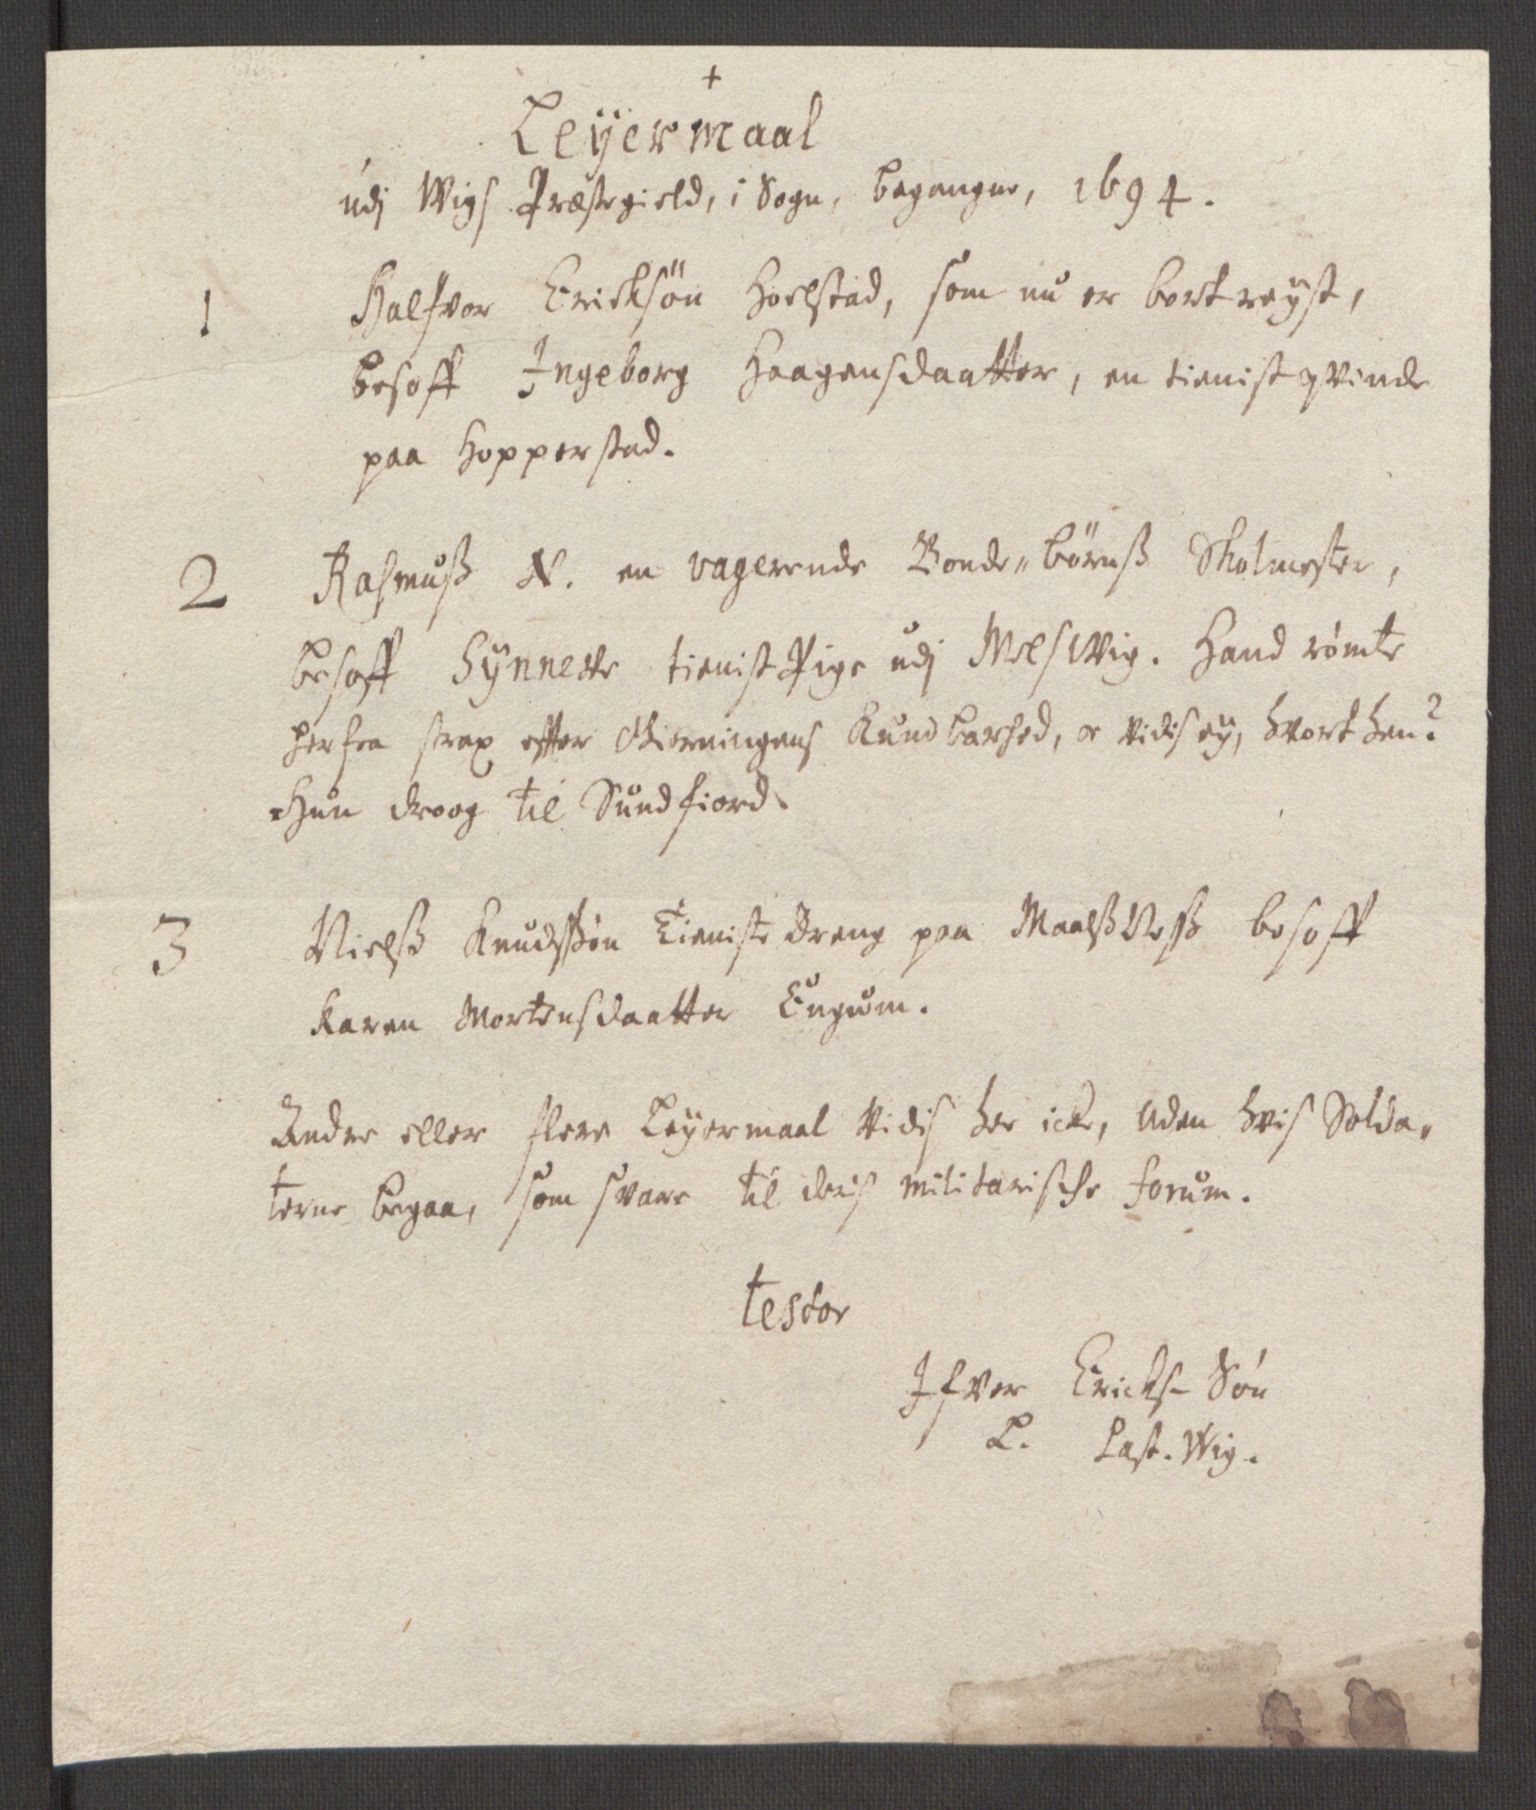 +
Leÿermaal
udj Wigs Præstegield, i Sogn, begangne, 1694.
1 Halfvor Ericksön Hoelstad, som nu er bortreÿst,
besoff Ingeborg Haagensdaatter, en tienistqvinde
paa Hopperstad.
2 Rasmuß N. en vagerende Bonde-börnß Skolmester,
besoff Sÿnneve tienistPige udj MelsWig. Hand römte
herfra strax effter Gierningens Kundbarhed, Vidis eÿ, hvorthen?
Hun droog til Sundfiord.
3 Nielß Knudßön Tieniste Dreng paa MaalßNeß besoff
Karen Mortensdaatter
Andre eller flere Leÿermaal Vidis her icke, Uden hvis Solda-
terne begaa, som svare til deris militariske forum.
testor
Ifver Ericks-Søn
P. Past. Wig.